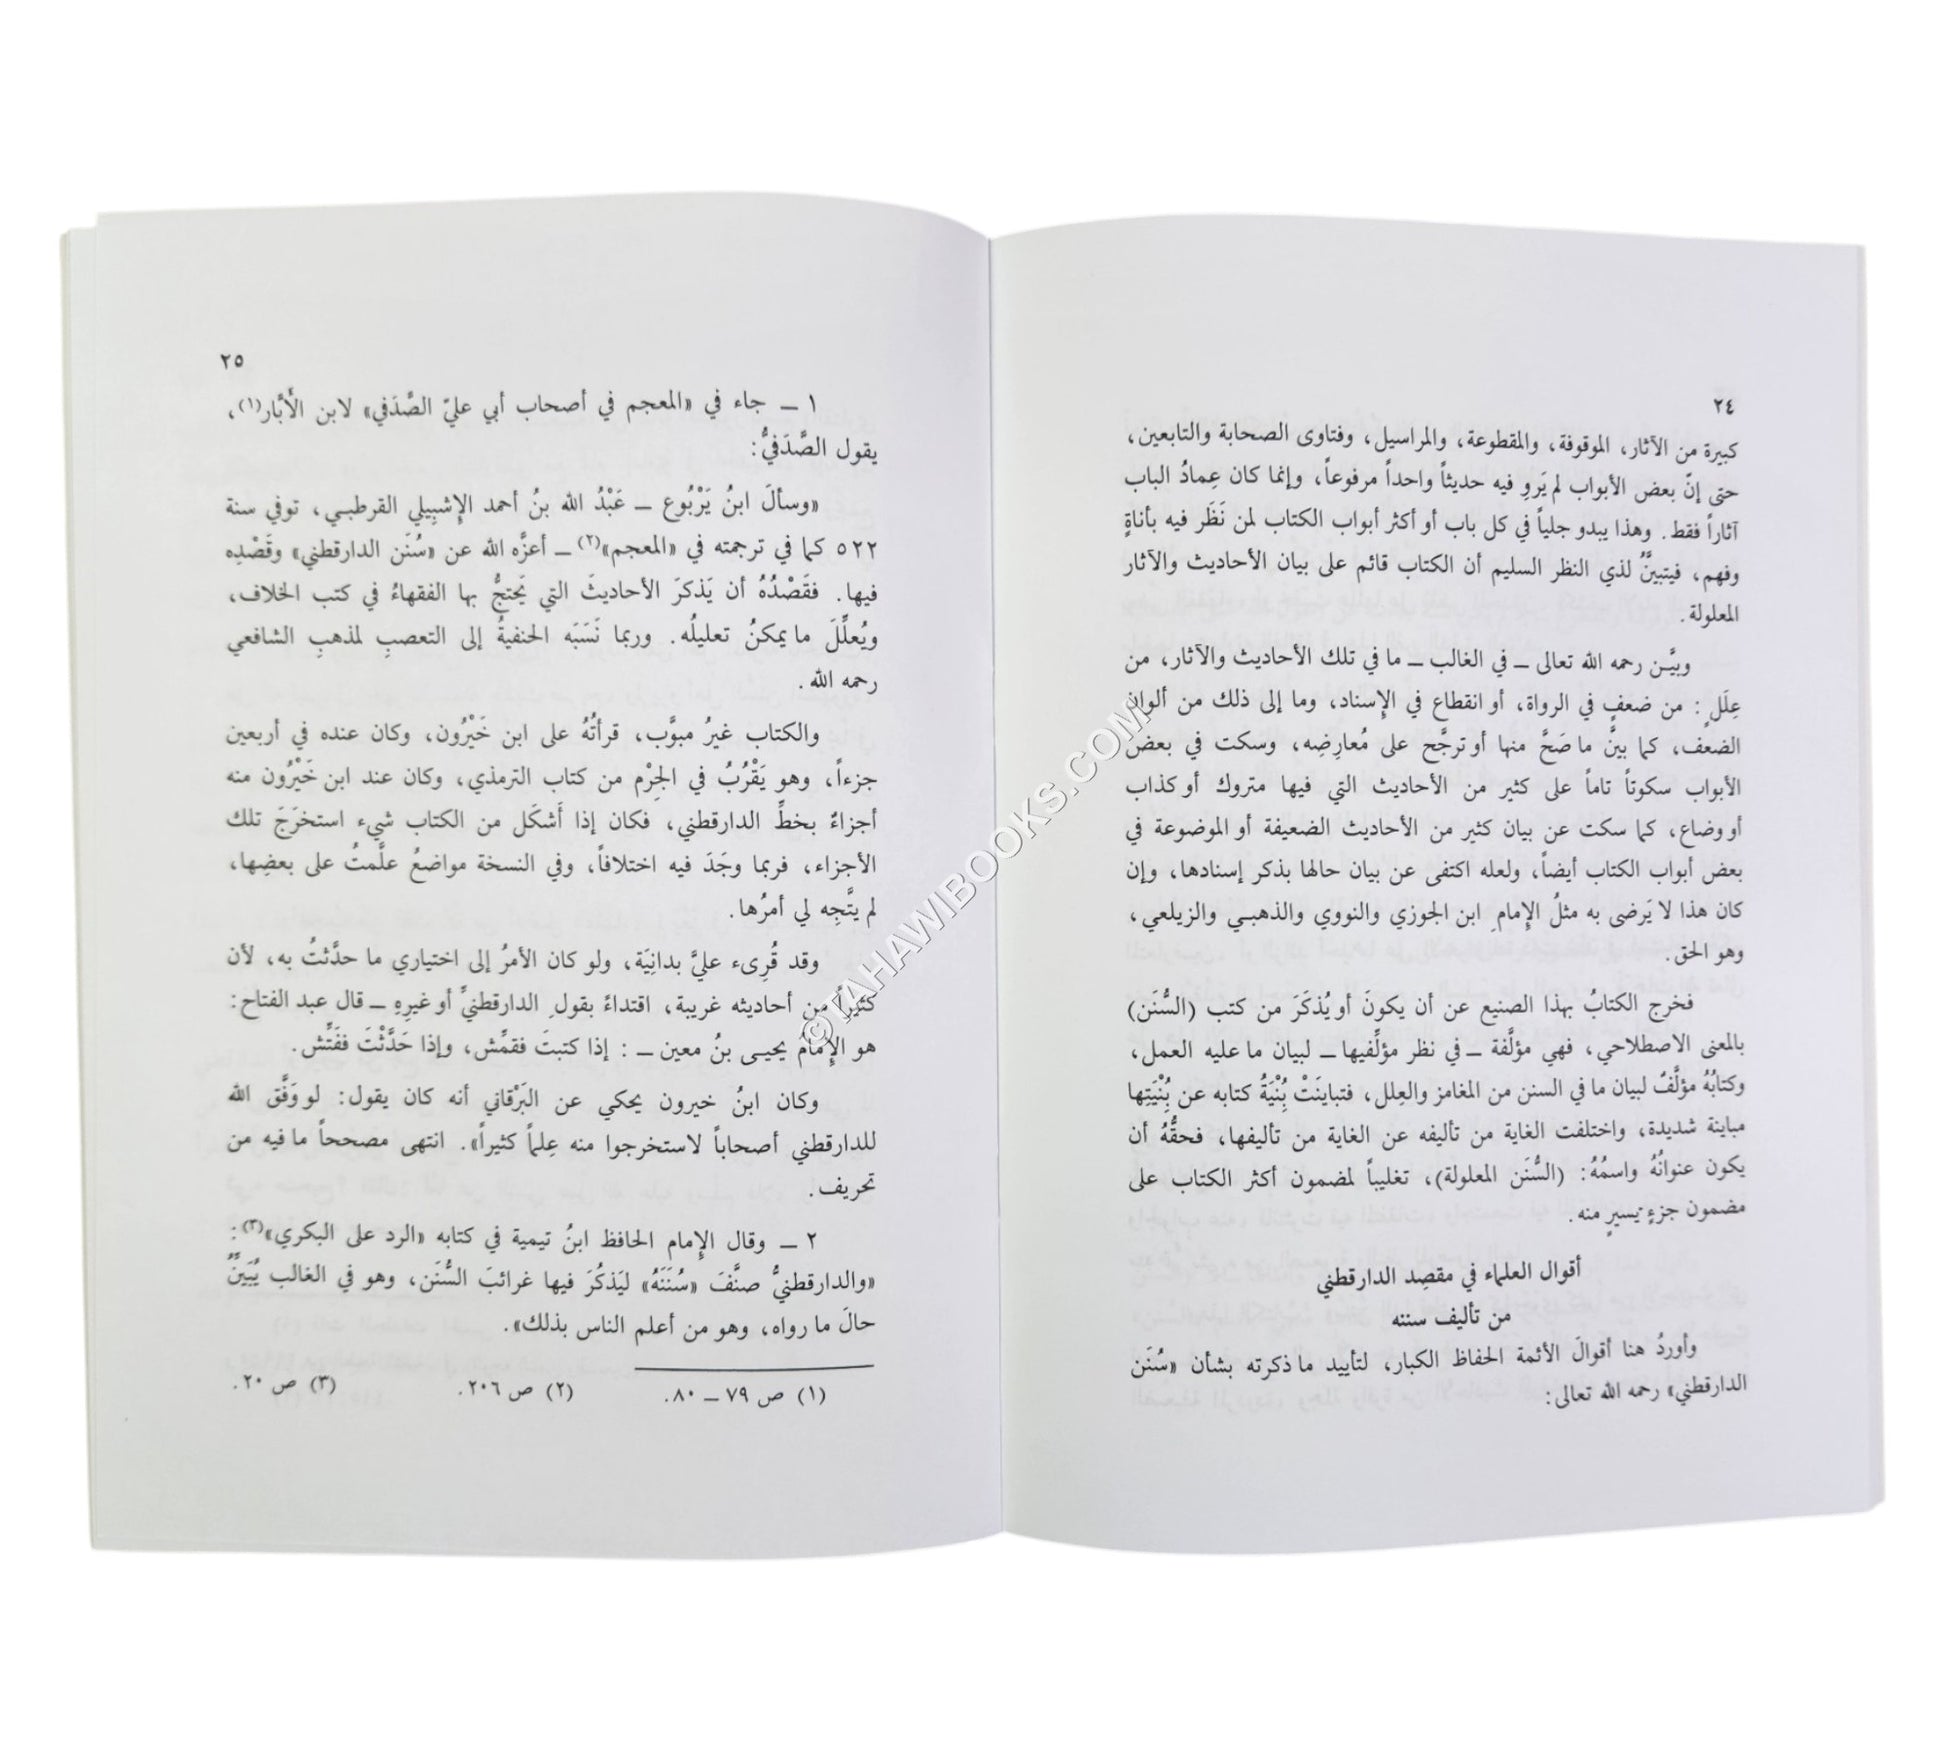 ٢٤
كبيرة من الآثار، الموقوفة، والمقطوعة، والمراسيل، وفتاوى الصحابة والتابعين،
حتى إنّ بعض الأبواب لم يَروِ فيه حديثاً واحداً مرفوعاً، وإنما كان عِمادُ الباب
آثاراً فقط. وهذا يبدو جلياً في كل باب أو أكثر أبواب الكتاب لمن نَظَر فيه بأناةٍ
وفهم، فيتبيَّنُ لذي النظر السليم أن الكتاب قائم على بيان الأحاديث والآثار
المعلولة.
وبيَّن رحمه الله تعالى ــ في الغالب ــ ما في تلك الأحاديث والآثار، من
عِلَلٍ: من ضعفٍ في الرواة، أو انقطاع في الإِسناد، وما إلى ذلك من ألوان
الضعف، كما بينَّ ما صَحَّ منها أو ترجَّح على مُعارِضِه، وسكت في بعض
الأبواب سكوتاً تاماً على كثير من الأحاديث التي فيها متروك أو كذاب
أو وضاع، كما سكت عن بيان كثير من الأحاديث الضعيفة أو الموضوعة في
بعض أبواب الكتاب أيضاً، ولعله اكتفى عن بيان حالها بذكر إسنادها، وإن
كان هذا لا يَرضى به مثلُ الإِمامِ ابن الجوزي والنووي والذهبي والزيلعي،
وهو الحق.
فخرج الكتابُ بهذا الصنيع عن أن يكونَ أو يُذكَرَ من كتب (السُّنَن)
بالمعنى الاصطلاحي، فهي مؤلَّفة ــ في نظر مؤلِّفيها ــ لبيان ما عليه العمل،
وكتابُهُ مؤلَّفٌ لبيان ما في السنن من المغامز والعِلل، فتباينَتْ بُنْيَةُ كتابه عن بُنْيَتِها
مباينة شديدة، واختلفت الغاية من تأليفه عن الغاية من تأليفها، فحقُّهُ أن
يكون عنوانُهُ واسمُهُ: (السُّنَن المعلولة)، تغليباً لمضمون أكثر الكتاب على
مضمون جزءٍ يسيرٍ منه.
أقوال العلماء في مقصِد الدارقطني
من تأليف سننه
وأوردُ هنا أقوالَ الأئمة الحفاظ الكبار، لتأييد ما ذكرته بشأن «سُنَن
الدارقطني» رحمه الله تعالى:
٢٥
١ ــ جاء في «المعجم في أصحاب أبي عليّ الصَّدَفي» لابن الأَبَّار(١)،
يقول الصَّدَفيُّ:
«وسألَ ابنُ يَرْبُوع ــ عَبْدُ الله بنُ أحمد الإِشبيلي القرطبي، توفي سنة
٥٢٢ كما في ترجمته في «المعجم»(٢) ــ أعزَّه الله عن «سُنَن الدارقطني» وقَصْدِه
فيها. فقَصْدُهُ أن يَذكرَ الأحاديثَ التي يَحتجُّ بها الفقهاءُ في كتب الخلاف،
ويُعلِّلَ ما يمكنُ تعليلُه. وربما نَسَبَه الحنفيةُ إلى التعصبِ لمذهبِ الشافعي
رحمه الله.
والكتاب غيرُ مبوَّب، قرأتُهُ على ابن خَيْرُون، وكان عنده في أربعين
جزءاً، وهو يَقْرُبُ في الجِرْم من كتاب الترمذي، وكان عند ابن خَيْرُون منه
أجزاءٌ بخطِّ الدارقطني، فكان إذا أشكَل من الكتاب شيء استخرَجَ تلك
الأجزاء، فربما وجَدَ فيه اختلافاً، وفي النسخة مواضعُ علَّمتُ على بعضِها،
لم يتَّجِه لي أمرُها.
وقد قُرِىء عليَّ بدانِيَة، ولو كان الأمرُ إلى اختياري ما حدَّثتُ به، لأن
كثيراً من أحاديثه غريبة، اقتداءً بقولِ الدارقطنيِّ أو غيرِهِ ــ قال عبد الفتاح:
هو الإِمامُ يحيى بنُ معين ــ : إذا كتبتَ فقمِّش، وإذا حَدَّثْتَ ففَتِّش.
وكان ابنُ خيرون يحكي عن البَرْقاني أنه كان يقول: لو وَفَّق الله
للدارقطني أصحاباً لاستخرجوا منه عِلماً كثيراً». انتهى مصححاً ما فيه من
تحريف.
٢ ــ وقال الإِمام الحافظ ابنُ تيمية في كتابه «الرد على البكري»(٣):
«والدارقطنيُّ صنَّفَ «سُنَنَهُ» ليَذكُرَ فيها غرائبَ السُّنَن، وهو في الغالب يُبَيِّنُ
حالَ ما رواه، وهو من أعلم الناس بذلك».
(١) ص ٧٩ ــ ٨٠. (٢) ص ٢٠٦. (٣) ص ٢٠.
©TAHAWIBOOKS.COM